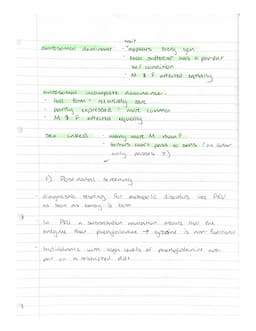 not
autosomal dominant · appears every gen
· each sufferer has a parent
w/ condition
· M & F affected equally
autosomal incomplete dominance:
· full form = relatively rare
· partly expressed = more common
· M & F affected equally
sex linked · many more M than F
· fathers can't pass to sons (as father
only passes Y)
c) Post natal screening
· diagnostic testing for metabolic disorders like PKU
as soon as baby is born
· In PKU a substitution mutation means that the
enzyme that phenylalanine → tyrosine is non-functional
· Individuals with high levels of phenylalanine are
put on a restricted diet